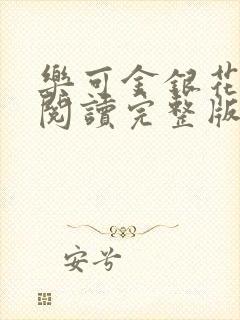 樂可金銀花
閱讀完整版
安兮